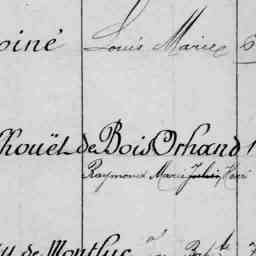 oiné Louis Marie
houët de Bois Orhand 1
Raymond Marie Julien, Henri
y de Montluc